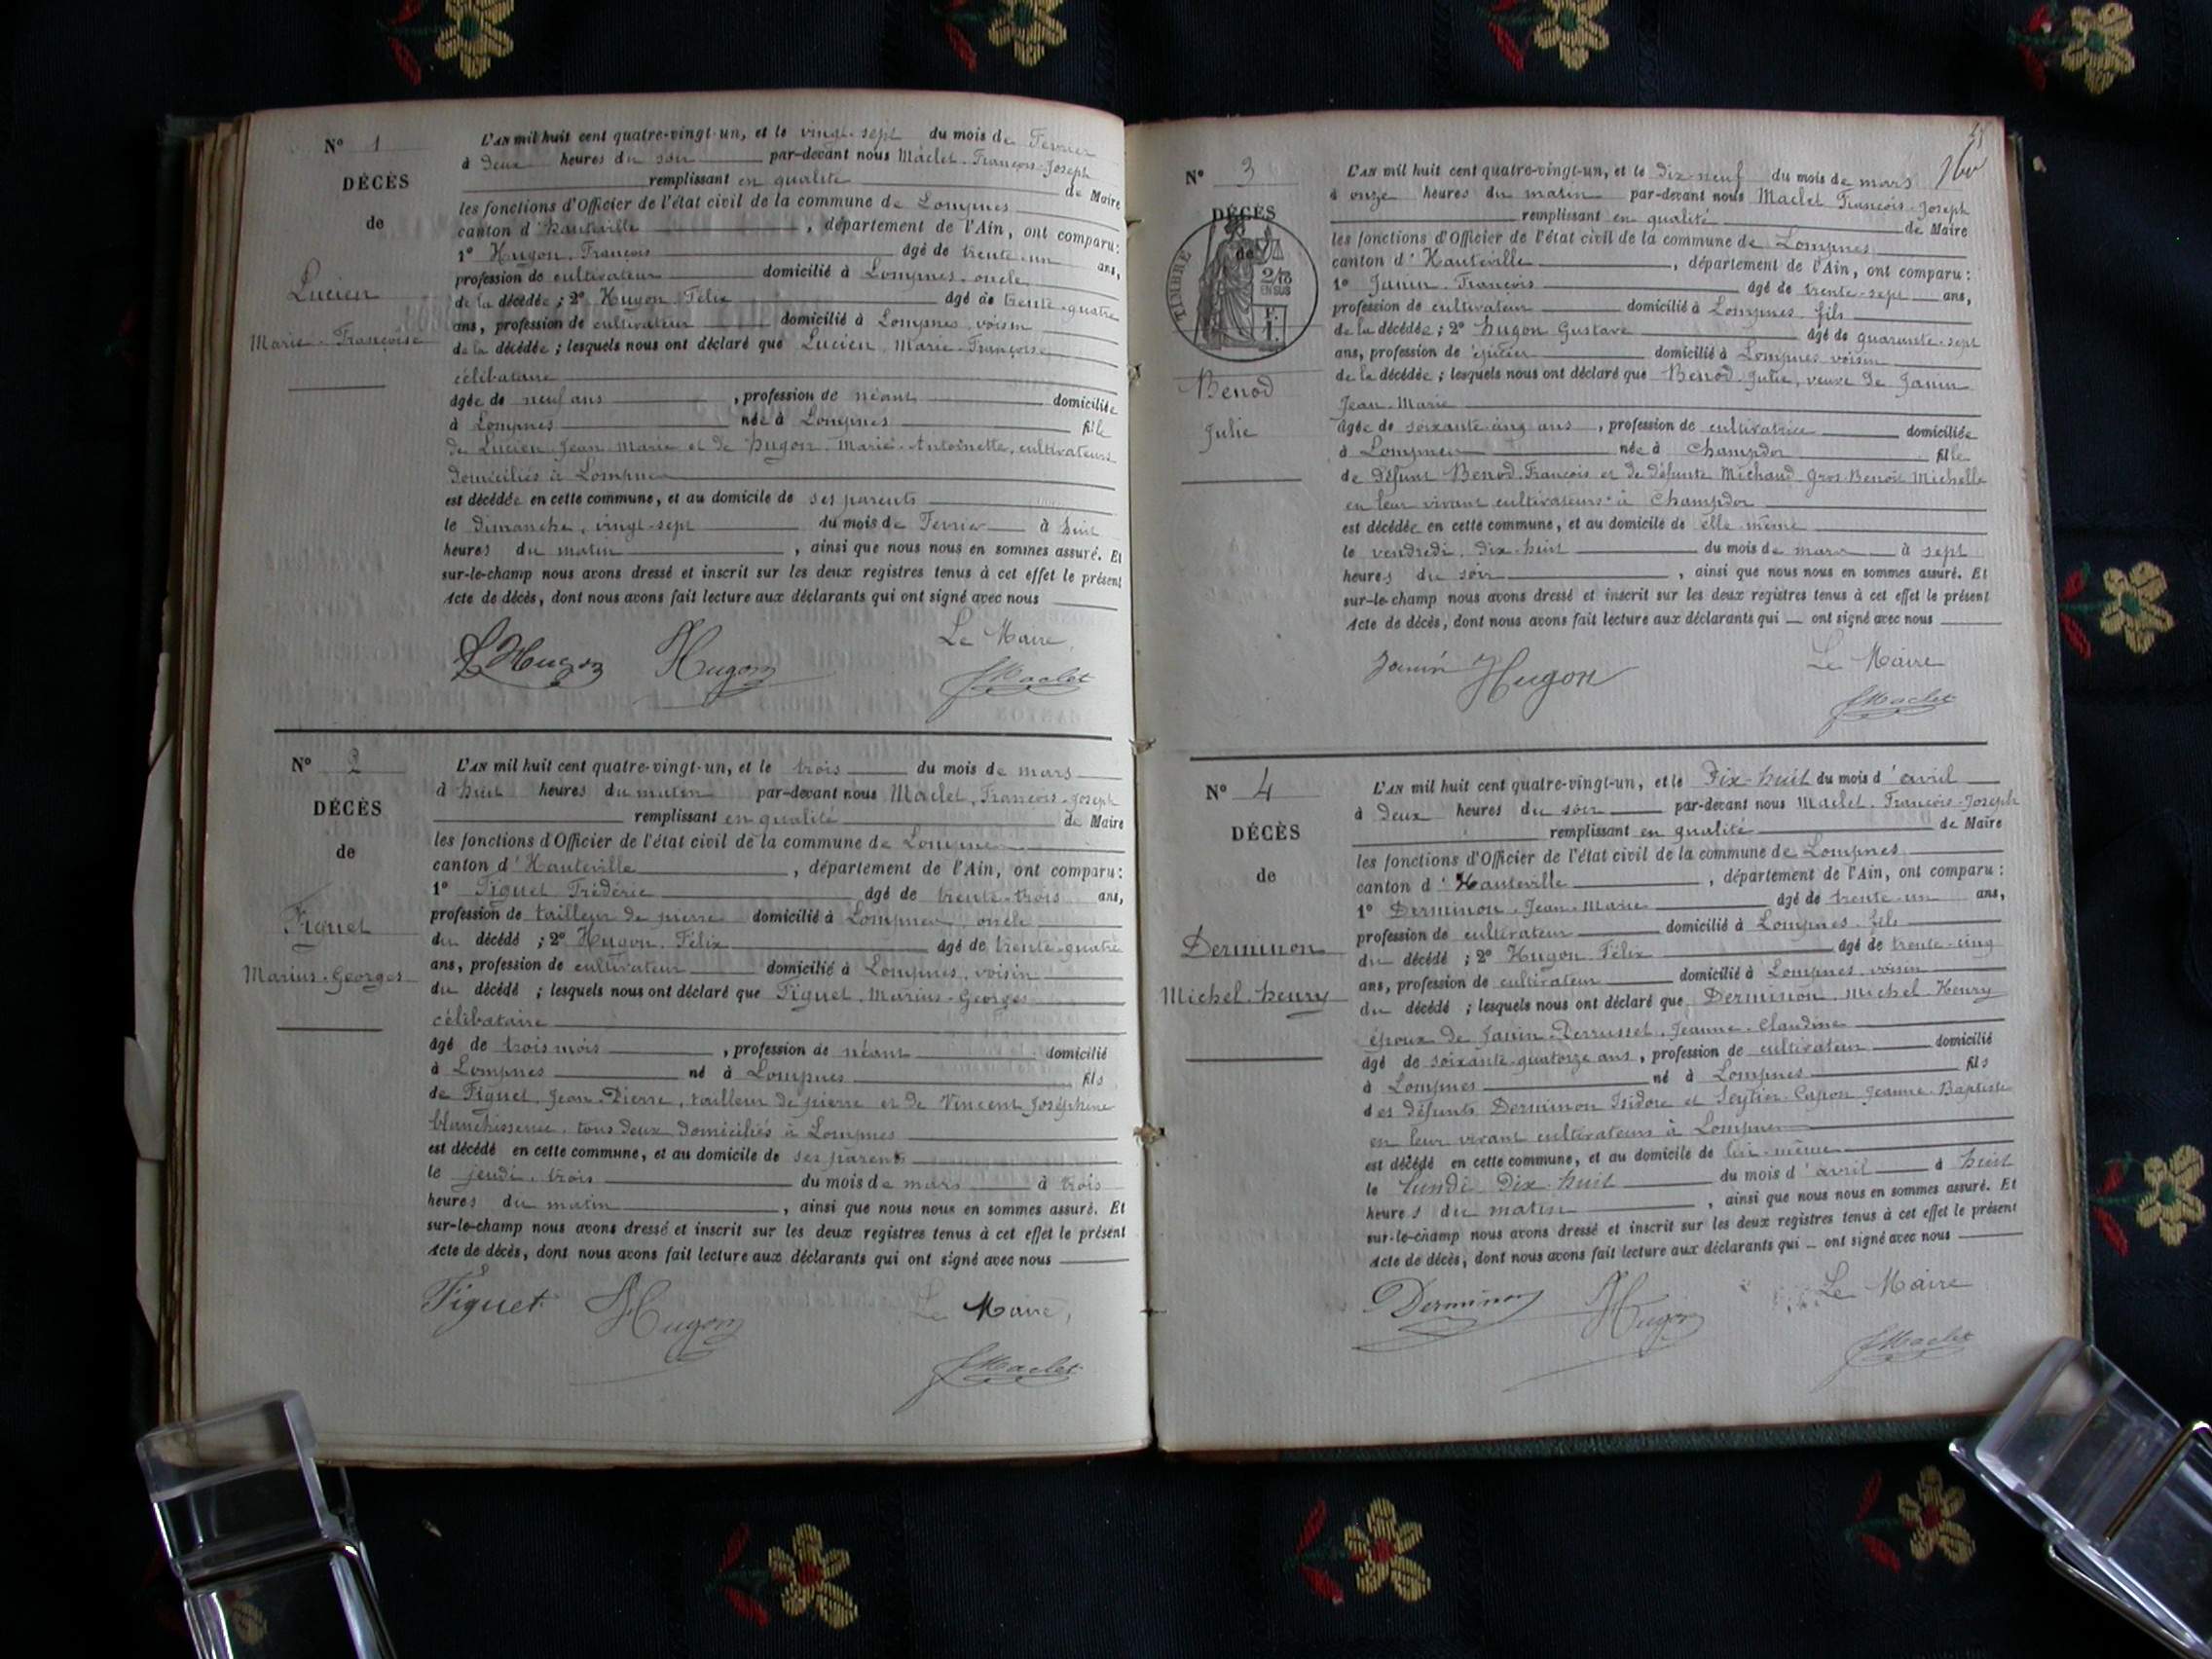 N° 1
DÉCÈS
de
Lucien
Marie-Françoise
L'AN mil huit cent quatre-vingt-un, et le vingt-sept du mois de Février
à deux heures du soir par-devant nous Maclet, François-Joseph
remplissant en qualité de Maire
les fonctions d'Officier de l'état civil de la commune de Lompnes
canton d'Hauteville, département de l'Ain, ont comparu:
1° Hugon, François âgé de trente-un ans,
profession de cultivateur domicilié à Lompnes, oncle
de la décédée; 2° Hugon Félix âgé de trente-quatre
ans, profession de cultivateur domicilié à Lompnes, voisin
de la décédée; lesquels nous ont déclaré que Lucien, Marie-Françoise
célibataire
âgée de neuf ans, profession de néant domiciliée
à Lompnes née à Lompnes fille
de Lucien Jean Marie et de Hugon Marie-Antoinette, cultivateurs
domiciliés à Lompnes
est décédée en cette commune, et au domicile de ses parents
le dimanche, vingt-sept du mois de Février à huit
heures du matin, ainsi que nous nous en sommes assuré. Et
sur-le-champ nous avons dressé et inscrit sur les deux registres tenus à cet effet le présent
Acte de décès, dont nous avons fait lecture aux déclarants qui ont signé avec nous
Le Maire,
Hugon Hugon Maclet
N° 2
DÉCÈS
de
Figuet
Marius-Georges
L'AN mil huit cent quatre-vingt-un, et le trois du mois de mars
à huit heures du matin par-devant nous Maclet, François-Joseph
remplissant en qualité de Maire
les fonctions d'Officier de l'état civil de la commune de Lompnes
canton d'Hauteville, département de l'Ain, ont comparu:
1° Figuet Frédéric âgé de trente-trois ans,
profession de tailleur de pierre domicilié à Lompnes, oncle
du décédé; 2° Hugon, Félix âgé de trente-quatre
ans, profession de cultivateur domicilié à Lompnes, voisin
du décédé; lesquels nous ont déclaré que Figuet, Marius-Georges
célibataire
âgé de trois mois, profession de néant domicilié
à Lompnes né à Lompnes fils
de Figuet, Jean-Pierre, tailleur de pierre et de Vincent Joséphine
blanchisseuse, tous deux domiciliés à Lompnes
est décédé en cette commune, et au domicile de ses parents
le jeudi, trois du mois de mars à trois
heures du matin, ainsi que nous nous en sommes assuré. Et
sur-le-champ nous avons dressé et inscrit sur les deux registres tenus à cet effet le présent
Acte de décès, dont nous avons fait lecture aux déclarants qui ont signé avec nous
Figuet Hugon Le Maire,
Maclet
N° 3
DÉCÈS
de
TIMBRE
2/10
EN SUS
Benod
Julie
L'AN mil huit cent quatre-vingt-un, et le dix-neuf du mois de mars
à onze heures du matin par-devant nous Maclet François-Joseph
remplissant en qualité de Maire
les fonctions d'Officier de l'état civil de la commune de Lompnes
canton d'Hauteville, département de l'Ain, ont comparu:
1° Janin François âgé de trente-sept ans,
profession de cultivateur domicilié à Lompnes, fils
de la décédée; 2° Hugon Gustave âgé de quarante-sept
ans, profession de épicier domicilié à Lompnes voisin
de la décédée; lesquels nous ont déclaré que Benod, Julie, veuve de Janin
Jean-Marie
âgée de soixante-cinq ans, profession de cultivatrice domiciliée
à Lompnes née à Champdor fille
de défunt Benod François et de défunte Michaud Gros-Benoit Michelle
en leur vivant cultivateurs à Champdor
est décédée en cette commune, et au domicile de elle-même
le vendredi, dix-huit du mois de mars à sept
heures du soir, ainsi que nous nous en sommes assuré. Et
sur-le-champ nous avons dressé et inscrit sur les deux registres tenus à cet effet le présent
Acte de décès, dont nous avons fait lecture aux déclarants qui — ont signé avec nous
Janin Hugon Le Maire
Maclet
N° 4
DÉCÈS
de
Derminon
Michel-henry
L'AN mil huit cent quatre-vingt-un, et le Dix-huit du mois d'avril
à deux heures du soir par-devant nous Maclet, François-Joseph
remplissant en qualité de Maire
les fonctions d'Officier de l'état civil de la commune de Lompnes
canton d'Hauteville, département de l'Ain, ont comparu:
1° Derminon, Jean-Marie âgé de trente-un ans,
profession de cultivateur domicilié à Lompnes, fils
du décédé; 2° Hugon Félix âgé de trente-cinq
ans, profession de cultivateur domicilié à Lompnes, voisin
du décédé; lesquels nous ont déclaré que Derminon, Michel-Henry
époux de Janin-Perrusset, Jeanne-Claudine
âgé de soixante-quatorze ans, profession de cultivateur domicilié
à Lompnes né à Lompnes fils
des défunts Derminon Isidore et Seytier-Capon Jeanne-Baptiste
en leur vivant cultivateurs à Lompnes
est décédé en cette commune, et au domicile de lui-même
le lundi Dix-huit du mois d'avril à huit
heures du matin, ainsi que nous nous en sommes assuré. Et
sur-le-champ nous avons dressé et inscrit sur les deux registres tenus à cet effet le présent
Acte de décès, dont nous avons fait lecture aux déclarants qui — ont signé avec nous
Derminon Hugon Le Maire
Maclet